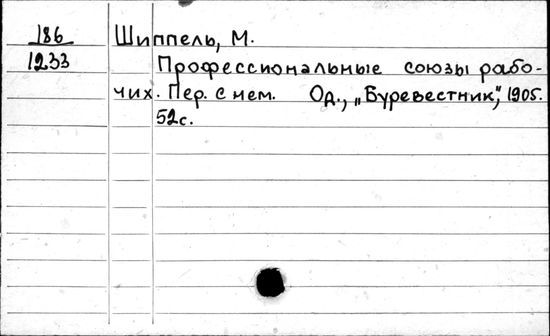 186 Шиппель, М.
1233 Профессиональные союзы рабо-
чих. Пер. с нем. Од., „Буревестник", 1905.
52с.